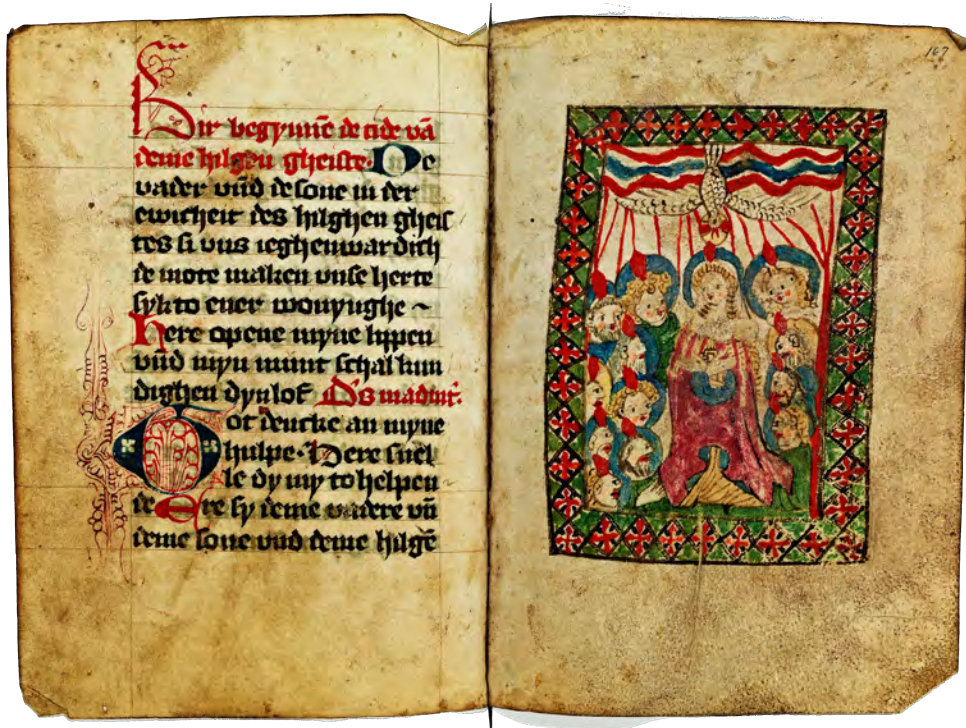 Hir begynnē de tide vā
deme hilgen gheiste. De
vader vnd de sone in der
ewicheit des hilghen gheis
tes si vns ieghenwardich
de mote maken vnse herte
syk to ener wonynghe ~
Here opene myne lippen
vnd myn munt schal kun
dighen dyn lof Ds in adiut'.
Got dencke an myne
hulpe. Here snel
le dy my to helpen
de Ere sy deme vadere vn̄
deme sone vnd deme hilgē
167